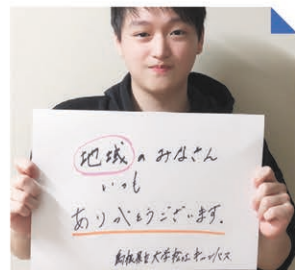 地域のみなさん
いつも
ありがとうございます。
島根県立大学松江キャンパス